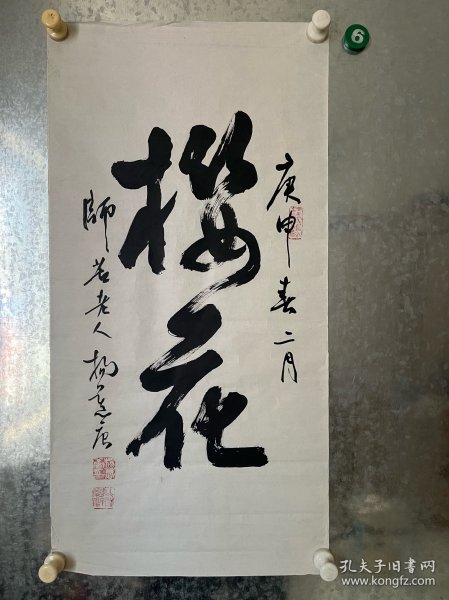 庚申春二月
櫻花
師若老人楊
6
孔夫子旧书网
www.kongfz.com